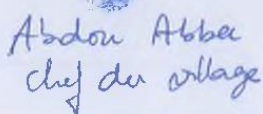 Abdou Abba
chef du village